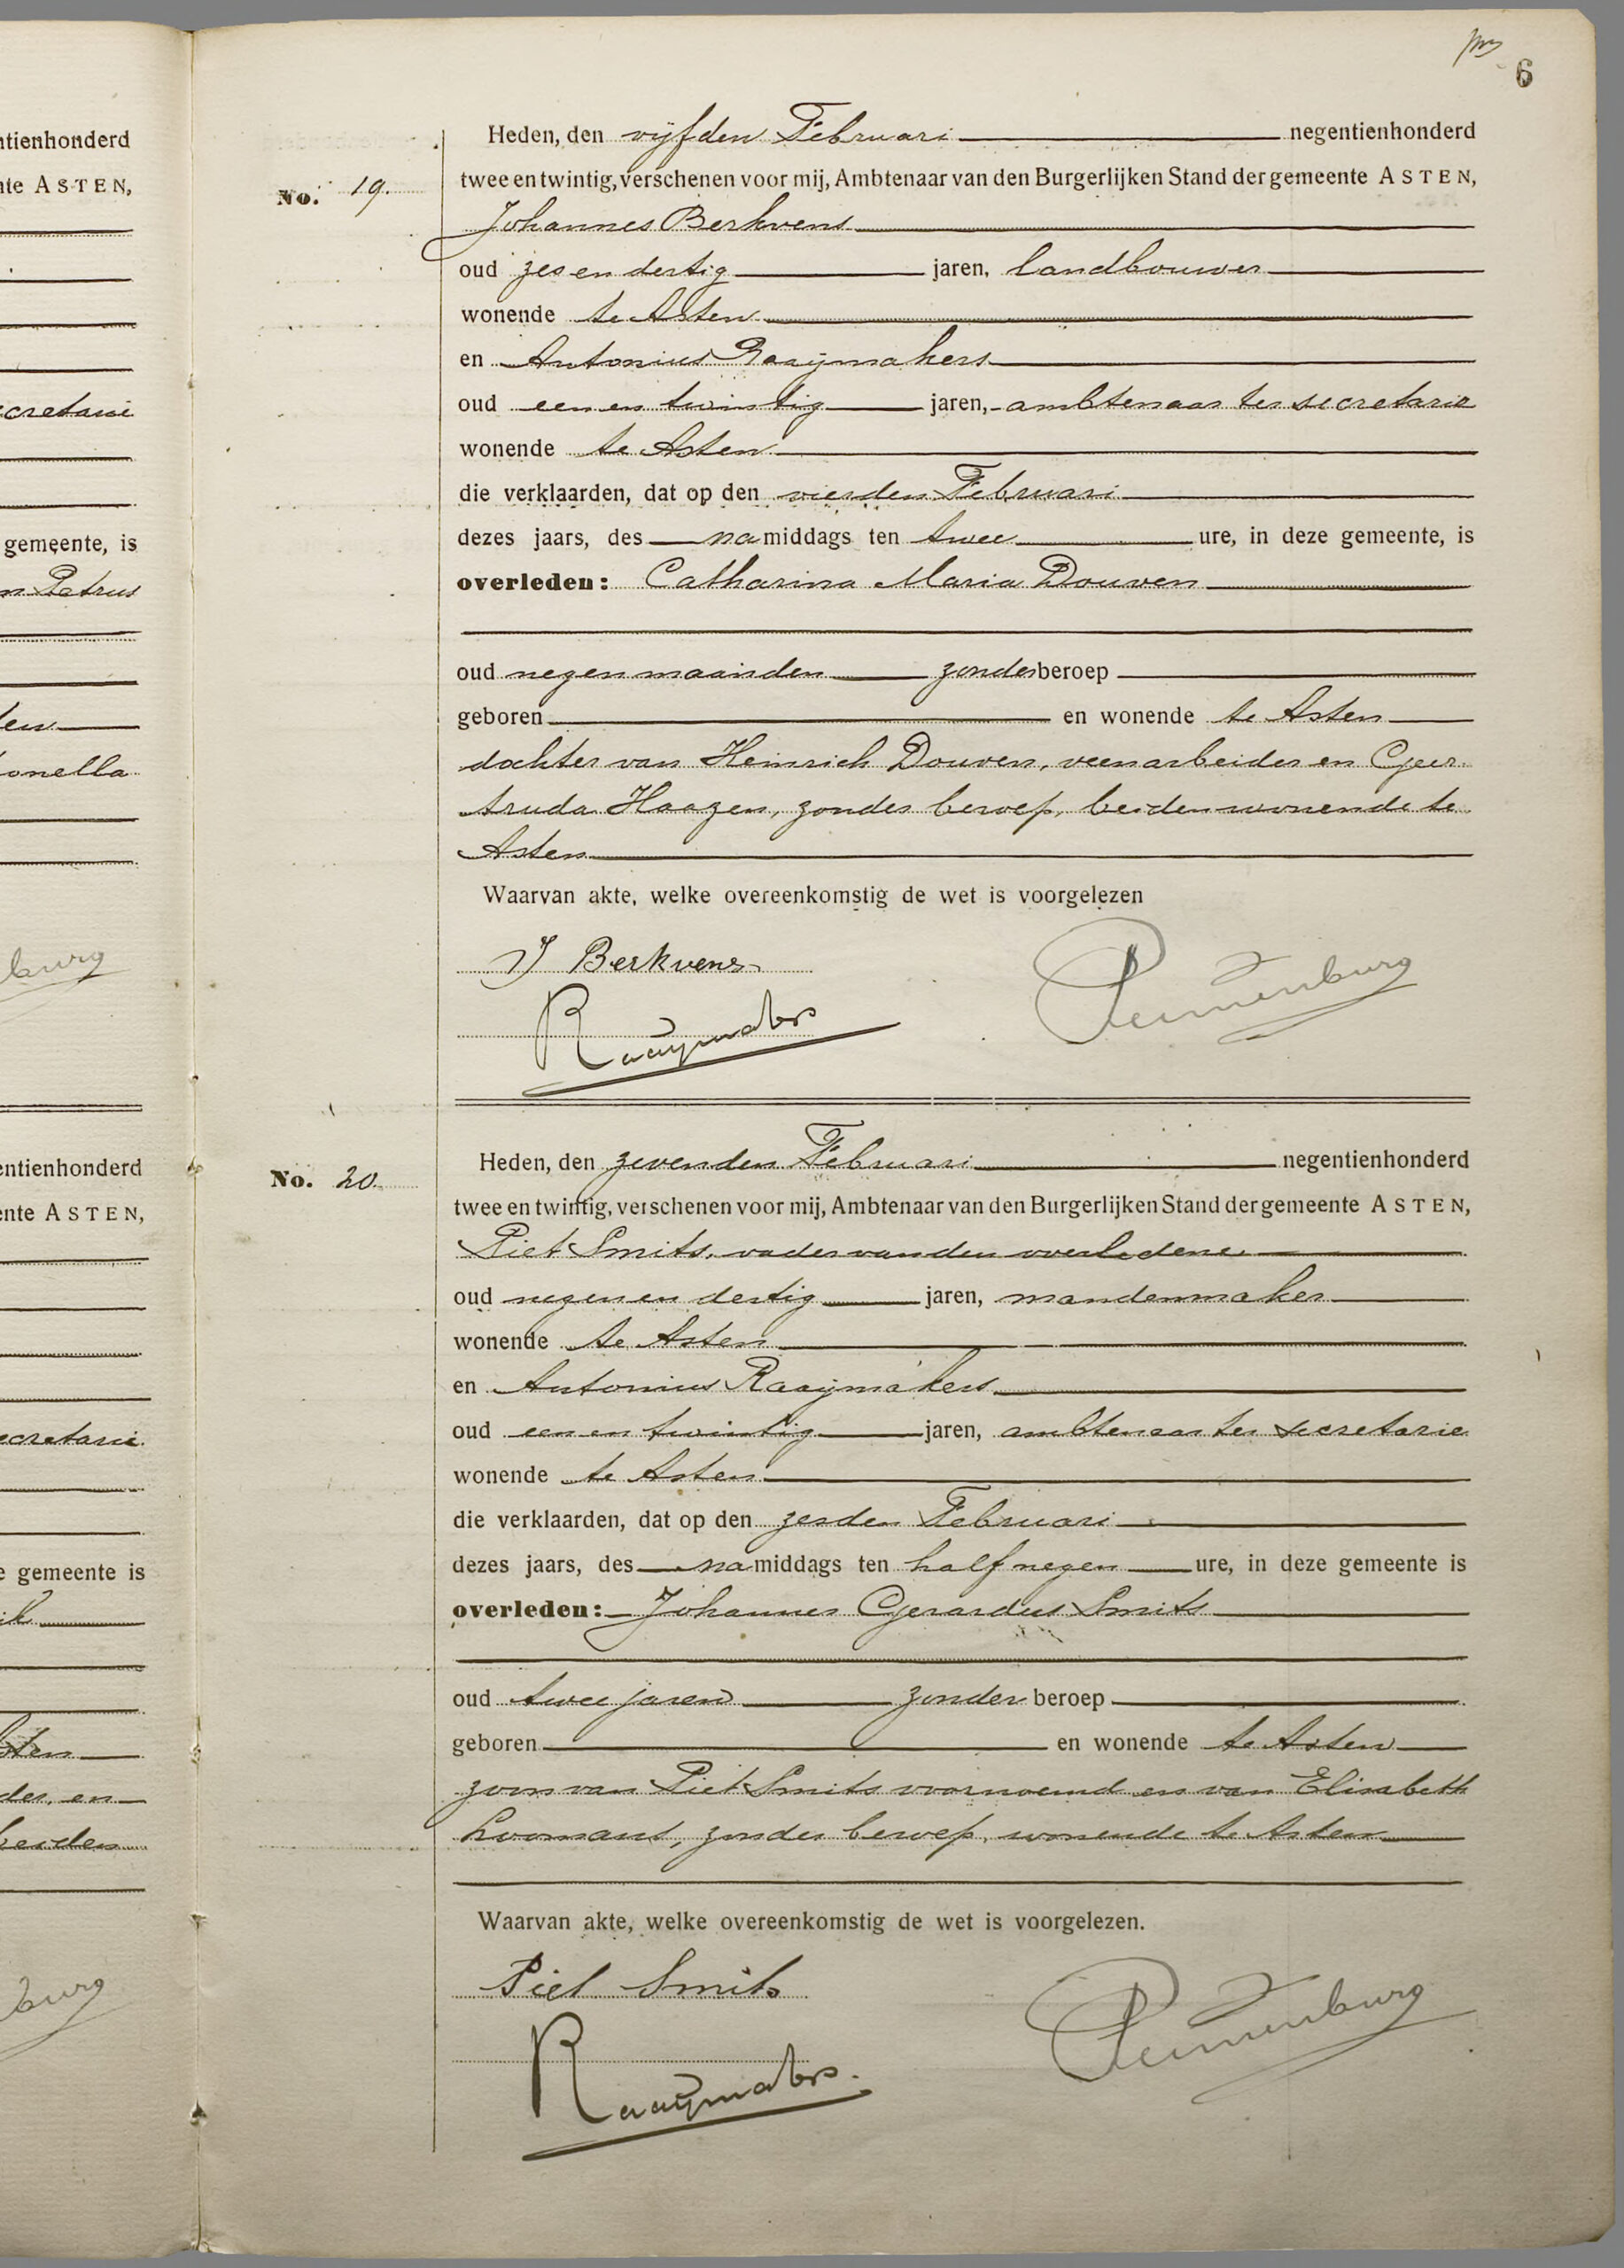 6
No. 19.
Heden, den vijfden Februari negentienhonderd
twee en twintig, verschenen voor mij, Ambtenaar van den Burgerlijken Stand der gemeente ASTEN,
Johannes Berkvens
oud zes en dertig jaren, landbouwer
wonende te Asten
en Antonius Raaymakers
oud een en twintig jaren, ambtenaar ter secretarie
wonende te Asten
die verklaarden, dat op den vierden Februari
dezes jaars, des namiddags ten twee ure, in deze gemeente, is
overleden: Catharina Maria Douven
oud negen maanden zonder beroep
geboren en wonende te Asten
dochter van Heinrich Douven, veenarbeider en Geer-
truda Haazen, zonder beroep, beiden wonende te
Asten
Waarvan akte, welke overeenkomstig de wet is voorgelezen
J Berkvens
Raaymakers
No. 20.
Heden, den zevenden Februari negentienhonderd
twee en twintig, verschenen voor mij, Ambtenaar van den Burgerlijken Stand der gemeente ASTEN,
Piet Smits, vader van den overledene
oud negen en dertig jaren, mandenmaker
wonende te Asten
en Antonius Raaymakers
oud een en twintig jaren, ambtenaar ter secretarie
wonende te Asten
die verklaarden, dat op den zesden Februari
dezes jaars, des namiddags ten half negen ure, in deze gemeente is
overleden: Johannes Gerardus Smits
oud twee jaren zonder beroep
geboren en wonende te Asten
zoon van Piet Smits voornoemd en van Elisabeth
Loomans, zonder beroep, wonende te Asten
Waarvan akte, welke overeenkomstig de wet is voorgelezen.
Piet Smits
Raaymakers.